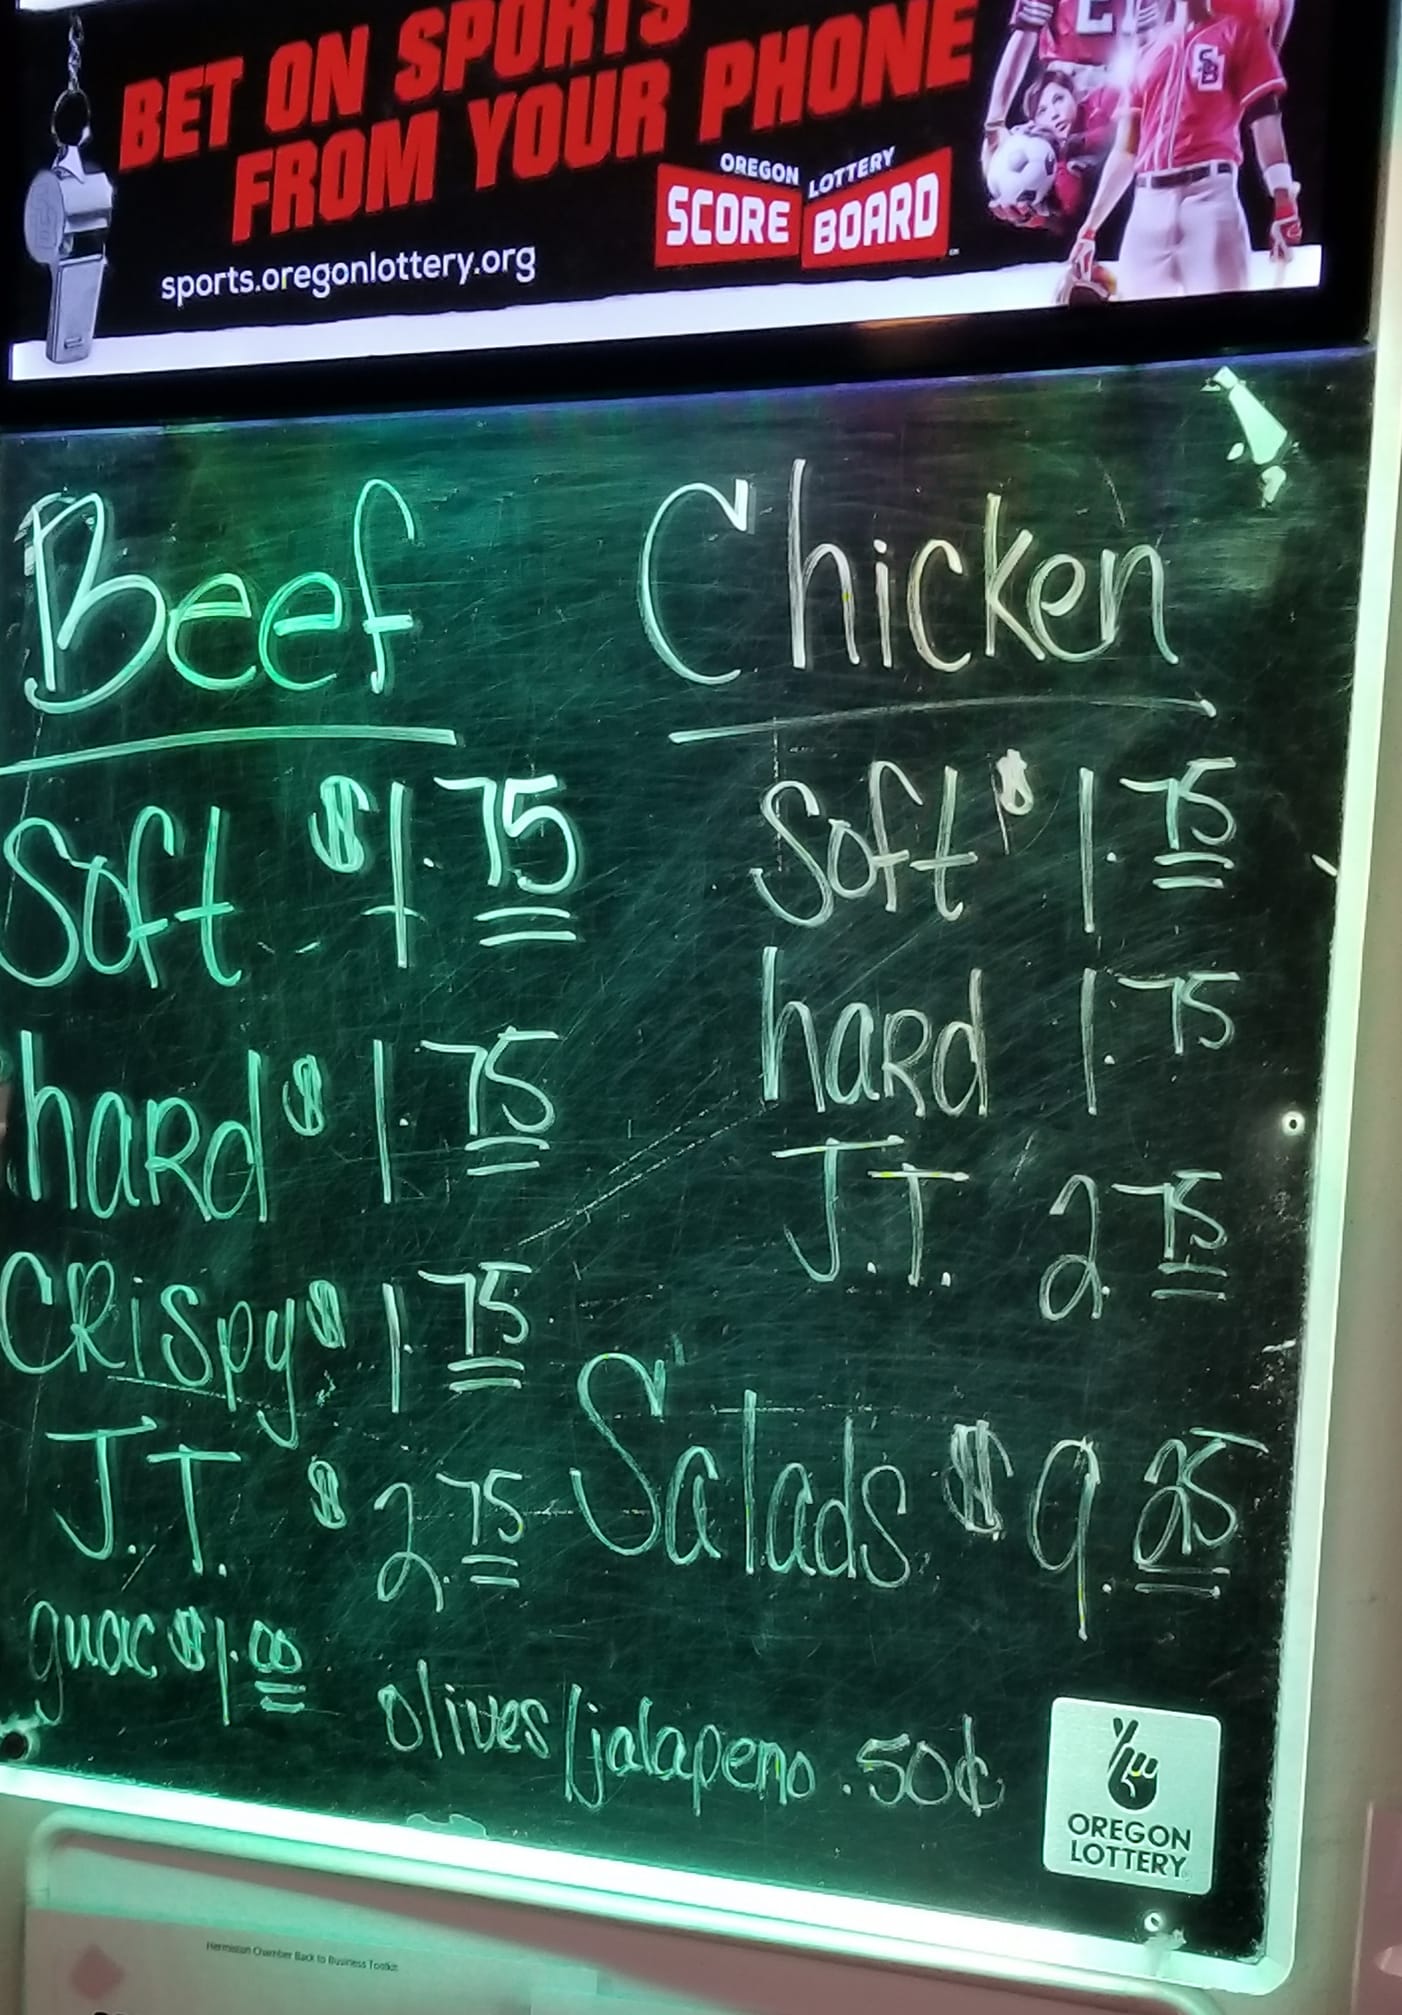 BET ON SPORTS
FROM YOUR PHONE
OREGON LOTTERY
SCORE BOARD
sports.oregonlottery.org
SB
Beef
Soft $1.75
hard $1.75
CRiSpy $1.75
J.T. $2.75
guac $1.00
Chicken
Soft $1.75
hard 1.75
J.T. 2.75
Salads $9.25
olives/jalapeno .50¢
OREGON
LOTTERY
Hermiston Chamber Back to Business Toolkit